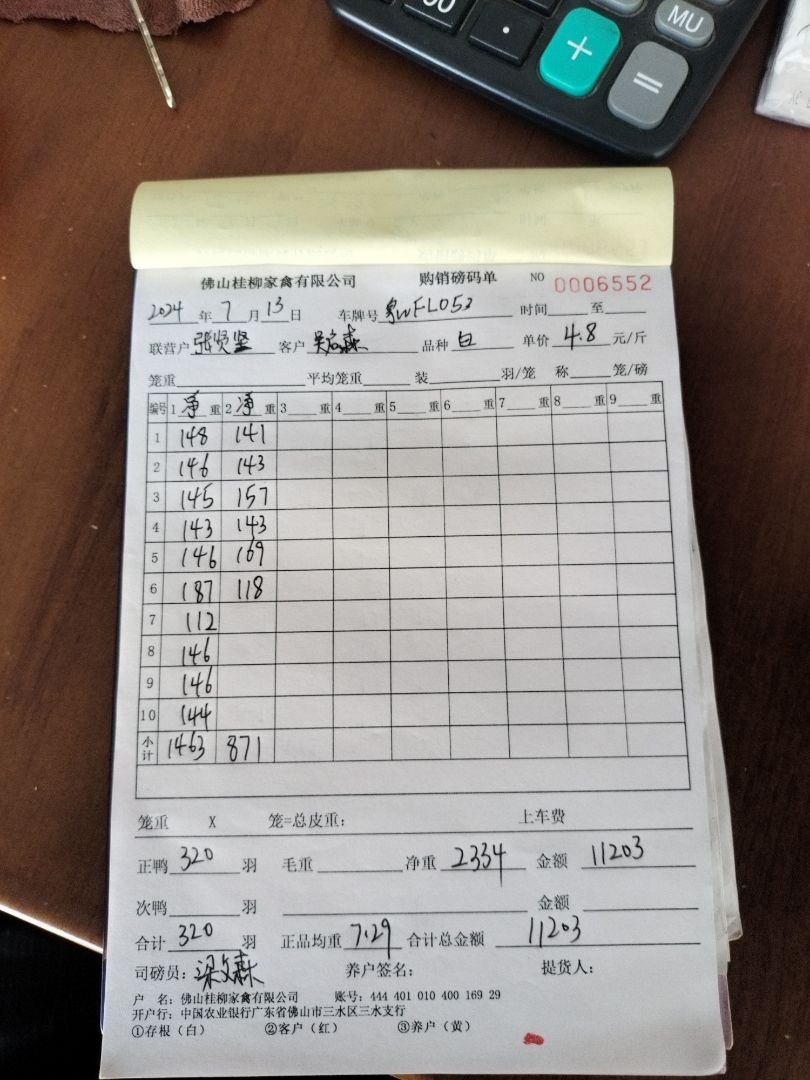 00 · MU
+ =
佛山桂柳家禽有限公司 购销磅码单 NO 0006552
2024年7月13日 车牌号 WFL053 时间 至
联营户 张贤坚 客户 品种 白 单价 4.8 元/斤
笼重 平均笼重 装 羽/笼 称 笼/磅
编号 1净重 2净重 3 重 4 重 5 重 6 重 7 重 8 重 9 重
1 148 141
2 146 143
3 145 157
4 143 143
5 146 169
6 187 118
7 112
8 146
9 146
10 144
小计 1463 871
笼重 X 笼=总皮重: 上车费
正鸭 320 羽 毛重 净重 2334 金额 11203
次鸭 羽 金额
合计 320 羽 正品均重 7.29 合计总金额 11203
司磅员: 梁文森 养户签名: 提货人:
户 名: 佛山桂柳家禽有限公司 账号: 444 401 010 400 169 29
开户行: 中国农业银行广东省佛山市三水区三水支行
①存根(白) ②客户(红) ③养户(黄)